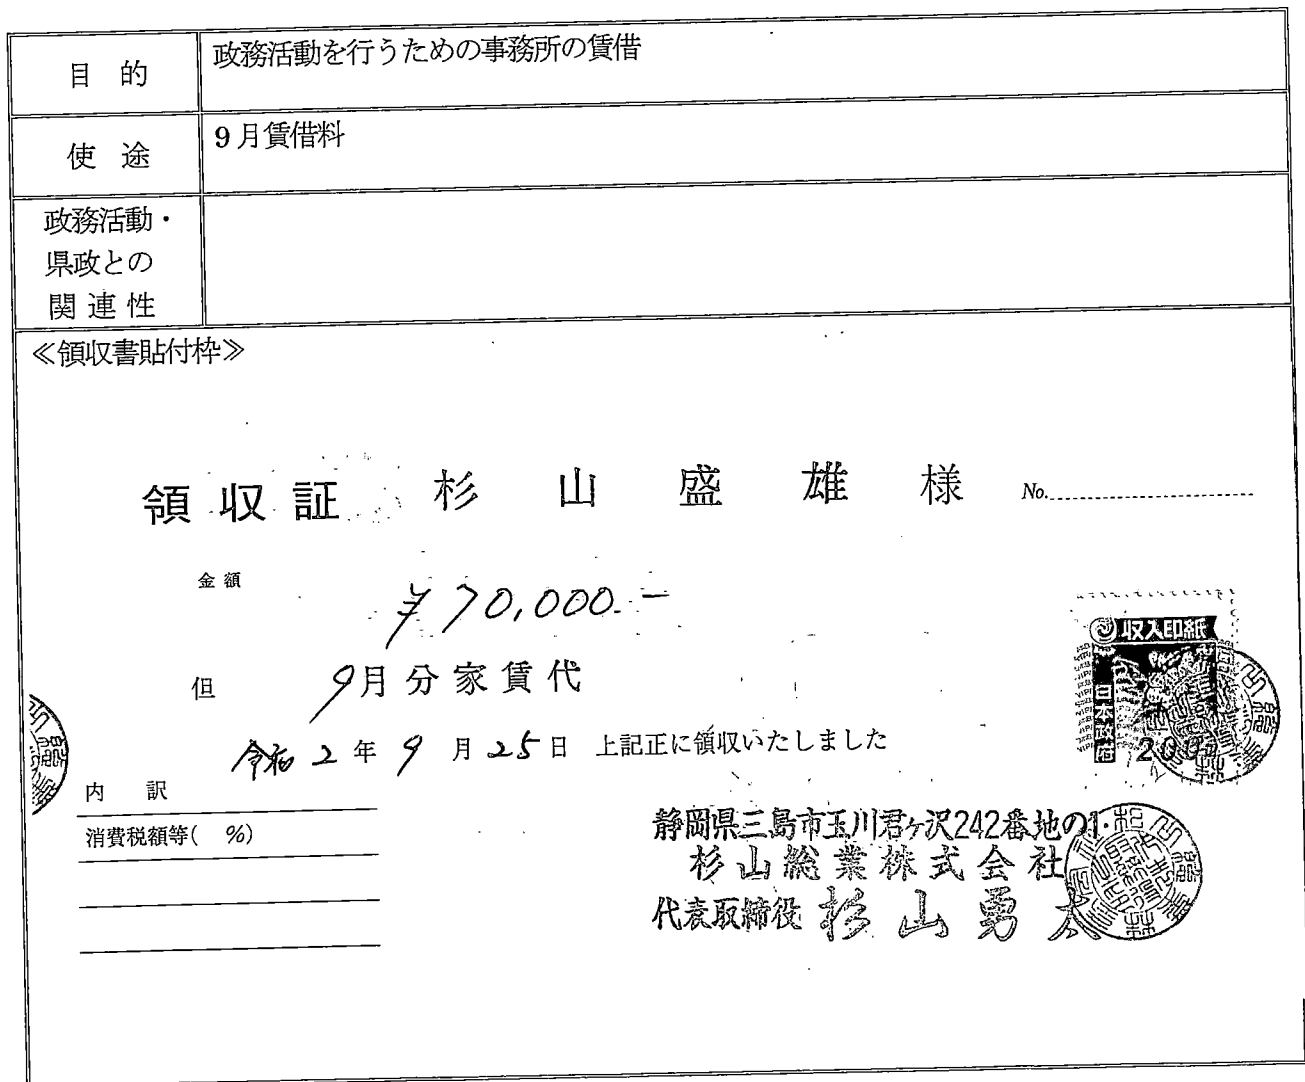 目 的
政務活動を行うための事務所の賃借
使 途
9月賃借料
政務活動・
県政との
関連性
≪領収書貼付枠≫
領収証 杉 山 盛 雄 様 No.
金額
¥70,000.-
但 9月分家賃代
令和2年9月25日 上記正に領収いたしました
収入印紙
日本政府
200
内 訳
消費税額等( %)
静岡県三島市玉川君ヶ沢242番地の1
杉山総業株式会社
代表取締役 杉山勇太